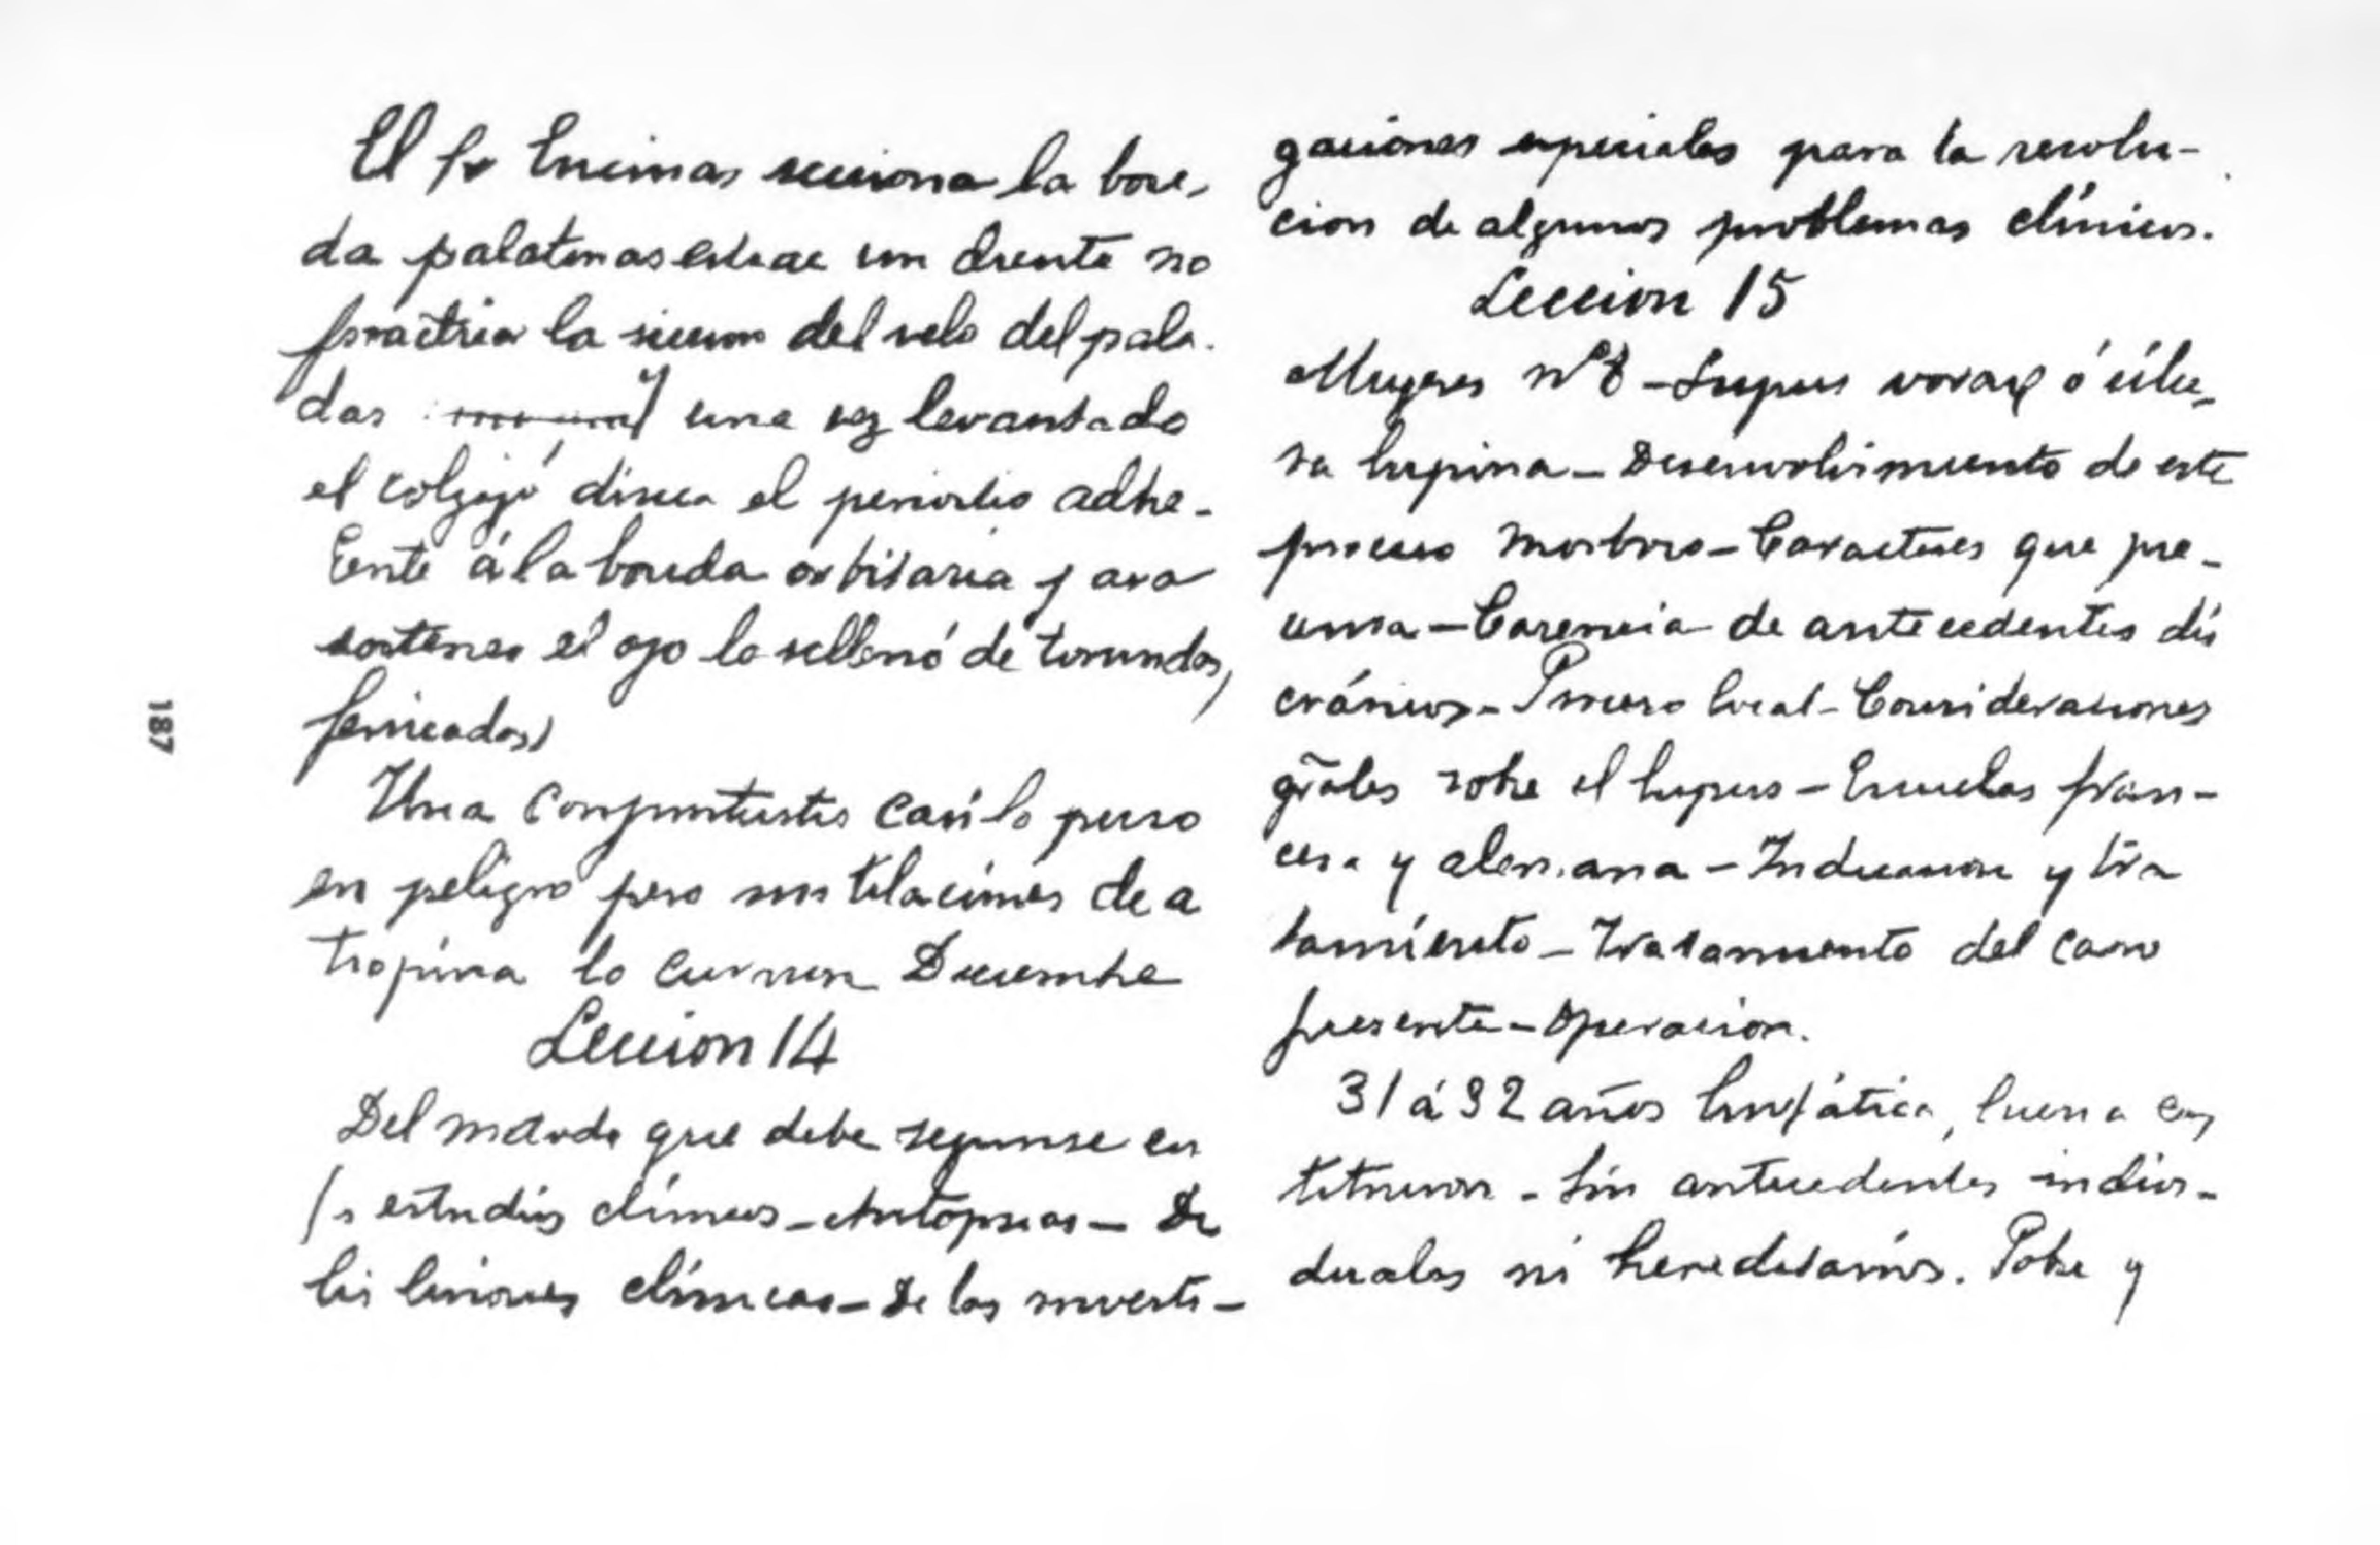 El Sr Encinas secciona la bove-
da palatina extrae un diente no
practica la seccion del velo del pala-
dar y una vez levantado
el colgajo diseca el periostio adhe-
rente á la boveda orbitaria para
sostener el ojo lo rellenó de torundas,
fenicadas)
Una conjuntivitis casi lo puso
en peligro pero instilaciones de a
tropina lo curaron Diciembre
Leccion 14
Del metodo que debe seguirse en
los estudios clínicos - Autopsias - De
las lecciones clínicas - De las investi-
gaciones especiales para la resolu-
cion de algunos problemas clínicos.
Leccion 15
Mugeres nº 8 - Lupus voraz ó úlce-
ra lupina - Desenvolvimiento de este
proceso morboso - Caracteres que pre-
senta - Carencia de antecedentes dis
crásicos - Proceso local - Consideraciones
grāles sobre el lupus - Escuelas fran-
cesa y alemana - Indicacion y tra
tamiento - Tratamiento del caso
presente - Operacion.
31 á 32 años linfática, buena cons
titucion - Sin antecedentes indivi-
duales ni hereditarios. Pobre y
187